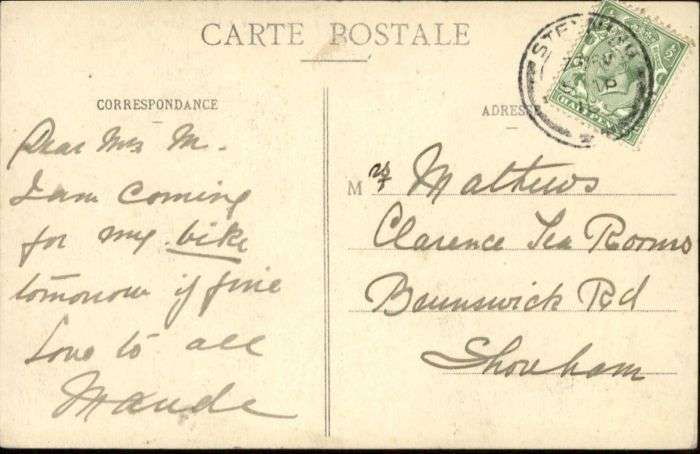 CARTE POSTALE
CORRESPONDANCE
Dear Mrs M.
I am coming
for my bike
tomorrow if fine
Love to all
Maude
ADRESSE
Mrs Mathews
Clarence Tea Rooms
Brunswick Rd
Shoreham
HALFPENNY